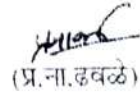 (प्र.ना.ढवळे)